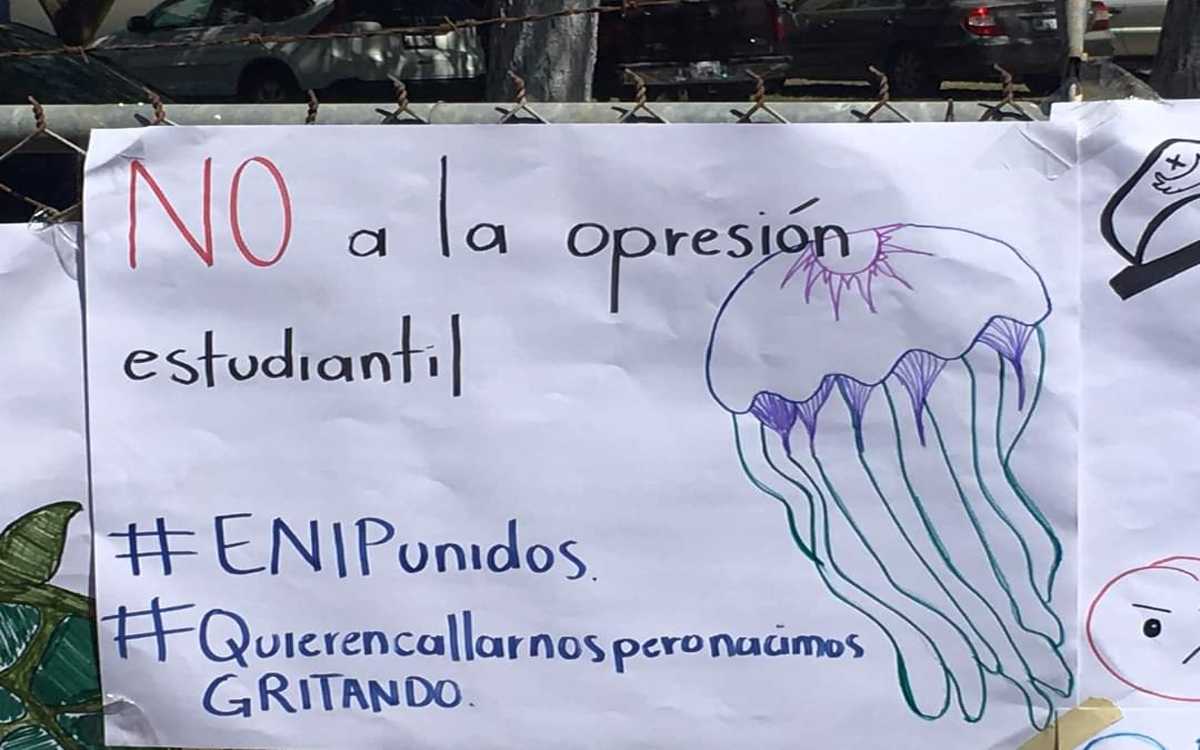 NO a la opresión
estudiantil
#ENIPunidos.
#Quierencallarnosperonacimos
GRITANDO.